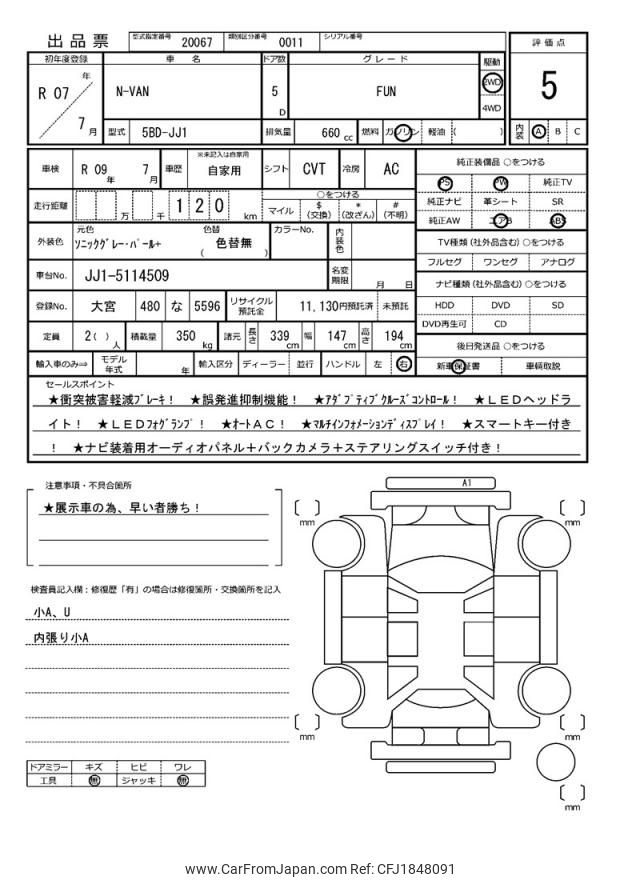 出品票 型式指定番号 20067 類別区分番号 0011 シリアル番号
評価点
5
内装 A B C
初年度登録 車名 ドア数 グレード 駆動
R 07 年 7 月 N-VAN 5 D FUN 2WD 4WD
型式 5BD-JJ1 排気量 660 cc 燃料 ガソリン 軽油 ( )
車検 R 09 年 7 月 車歴 ※未記入は自家用 自家用 シフト CVT 冷房 AC
走行距離 万 千 1 2 0 km ○をつける
マイル $ (交換) * (改ざん) # (不明)
外装色 元色 ソニックグレー・パール+ 色替 ( 色替無 ) カラーNo. 内装色
車台No. JJ1-5114509 名変期限 月 日
登録No. 大宮 480 な 5596 リサイクル預託金 11,130円預託済 未預託
定員 2( ) 人 積載量 350 kg 諸元 長さ 339 cm 幅 147 cm 高さ 194 cm
輸入車のみ⇒ モデル年式 年 輸入区分 ディーラー 並行 ハンドル 左 右
純正装備品 ○をつける
PS PW 純正TV
純正ナビ 革シート SR
純正AW エアB ABS
TV種類(社外品含む)○をつける
フルセグ ワンセグ アナログ
ナビ種類(社外品含む)○をつける
HDD DVD SD
DVD再生可 CD
後日発送品 ○をつける
新車保証書 車輌取説
セールスポイント
★衝突被害軽減ブレーキ! ★誤発進抑制機能! ★アダプティブクルーズコントロール! ★LEDヘッドラ
イト! ★LEDフォグランプ! ★オートAC! ★マルチインフォメーションディスプレイ! ★スマートキー付き
! ★ナビ装着用オーディオパネル+バックカメラ+ステアリングスイッチ付き!
注意事項・不具合箇所
★展示車の為、早い者勝ち!
検査員記入欄:修復歴「有」の場合は修復箇所・交換箇所を記入
小A、U
内張り小A
ドアミラー キズ ヒビ ワレ
工具 無 ジャッキ 無
A1
mm
mm
mm
mm
mm
www.CarFromJapan.com Ref: CFJ1848091